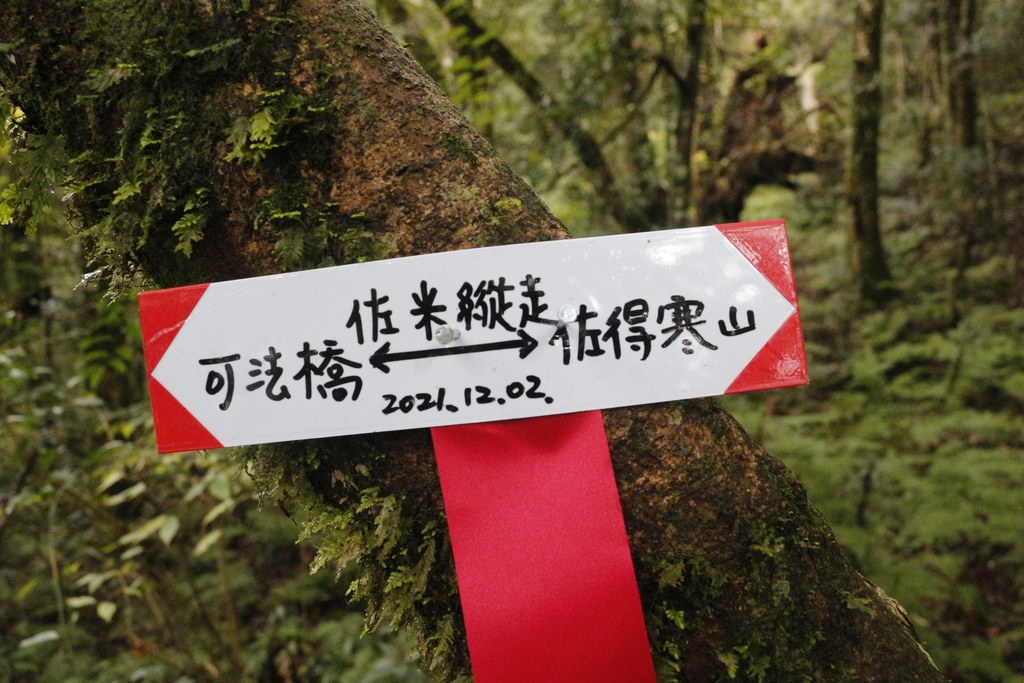 佐米縱走
可法橋 ↔ 佐得寒山
2021.12.02.